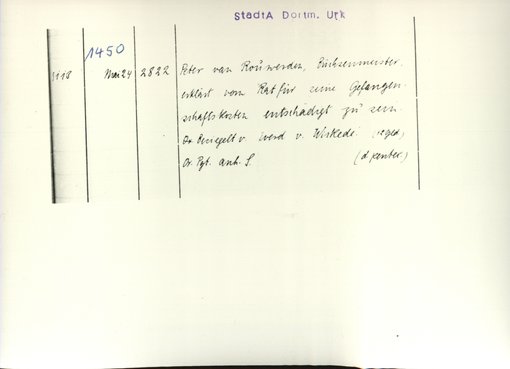 StadtA Dortm. Urk
1450
Mai 24 2822 Peter van Rouwerden, Büchsenmeister,
erklärt vom Rat für seine Gefangen-
schaftskosten entschädigt zu sein.
Or. besiegelt v. werd v. Wickede.
Or. Pgt. anh. S.